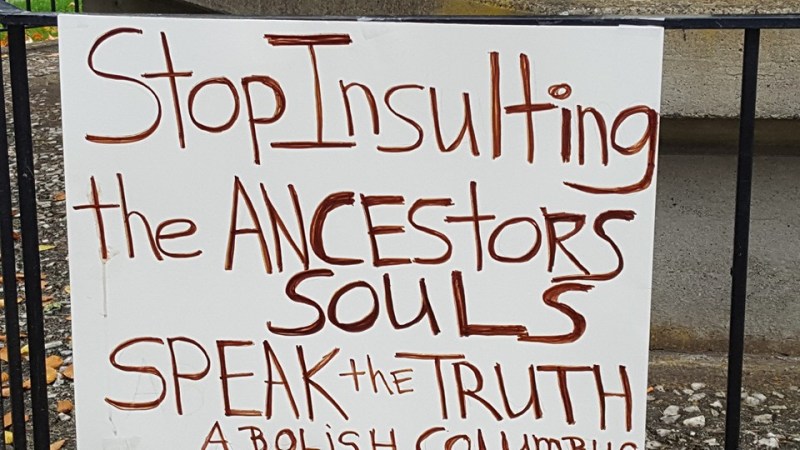 Stop Insulting
the ANCEStoRS
SOULS
SPEAK the TRUTH
ABOLiSH COLUMBUS